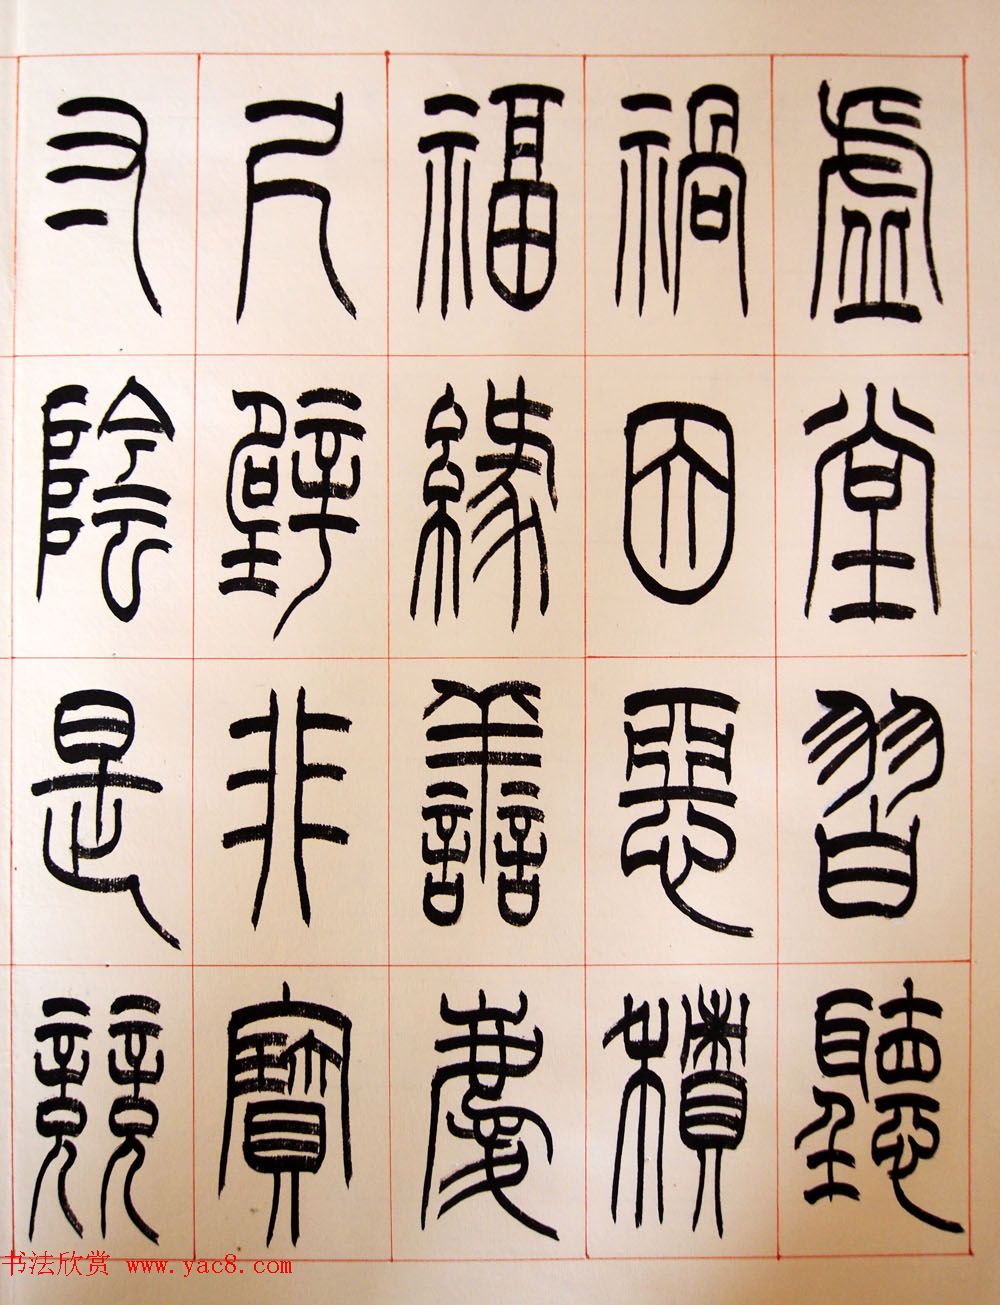 虛堂習聽
禍因惡積
福緣善慶
尺璧非寶
寸陰是競
书法欣赏 www.yac8.com